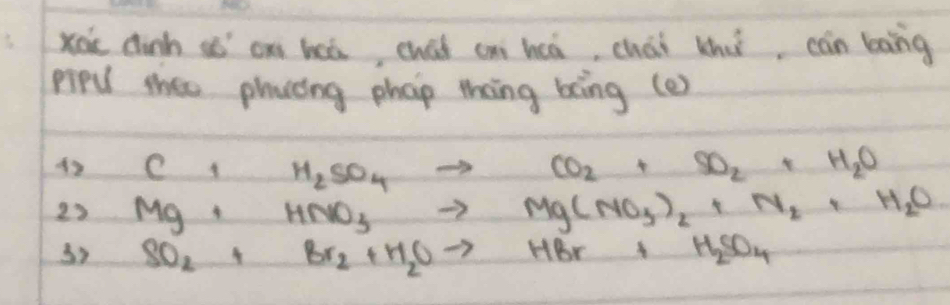 Xác định số oxi hoá, chất oxi hoá, chất khử, cân bằng
PTPƯ theo phương pháp thăng bằng (e)
1> C + H₂SO₄ → CO₂ + SO₂ + H₂O
2> Mg + HNO₃ → Mg(NO₃)₂ + N₂ + H₂O
3> SO₂ + Br₂ + H₂O → HBr + H₂SO₄